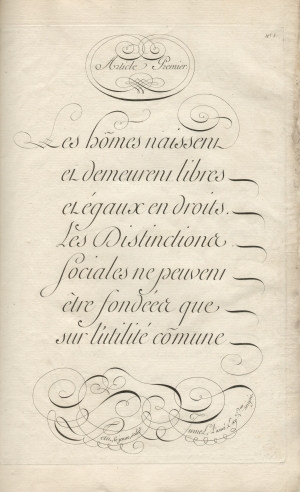 Article Premier
Les hom̃es naissent
et demeurent libres
et égaux en droits.
Les Distinctions
sociales ne peuvent
être fondées que
sur l'utilité com̃une